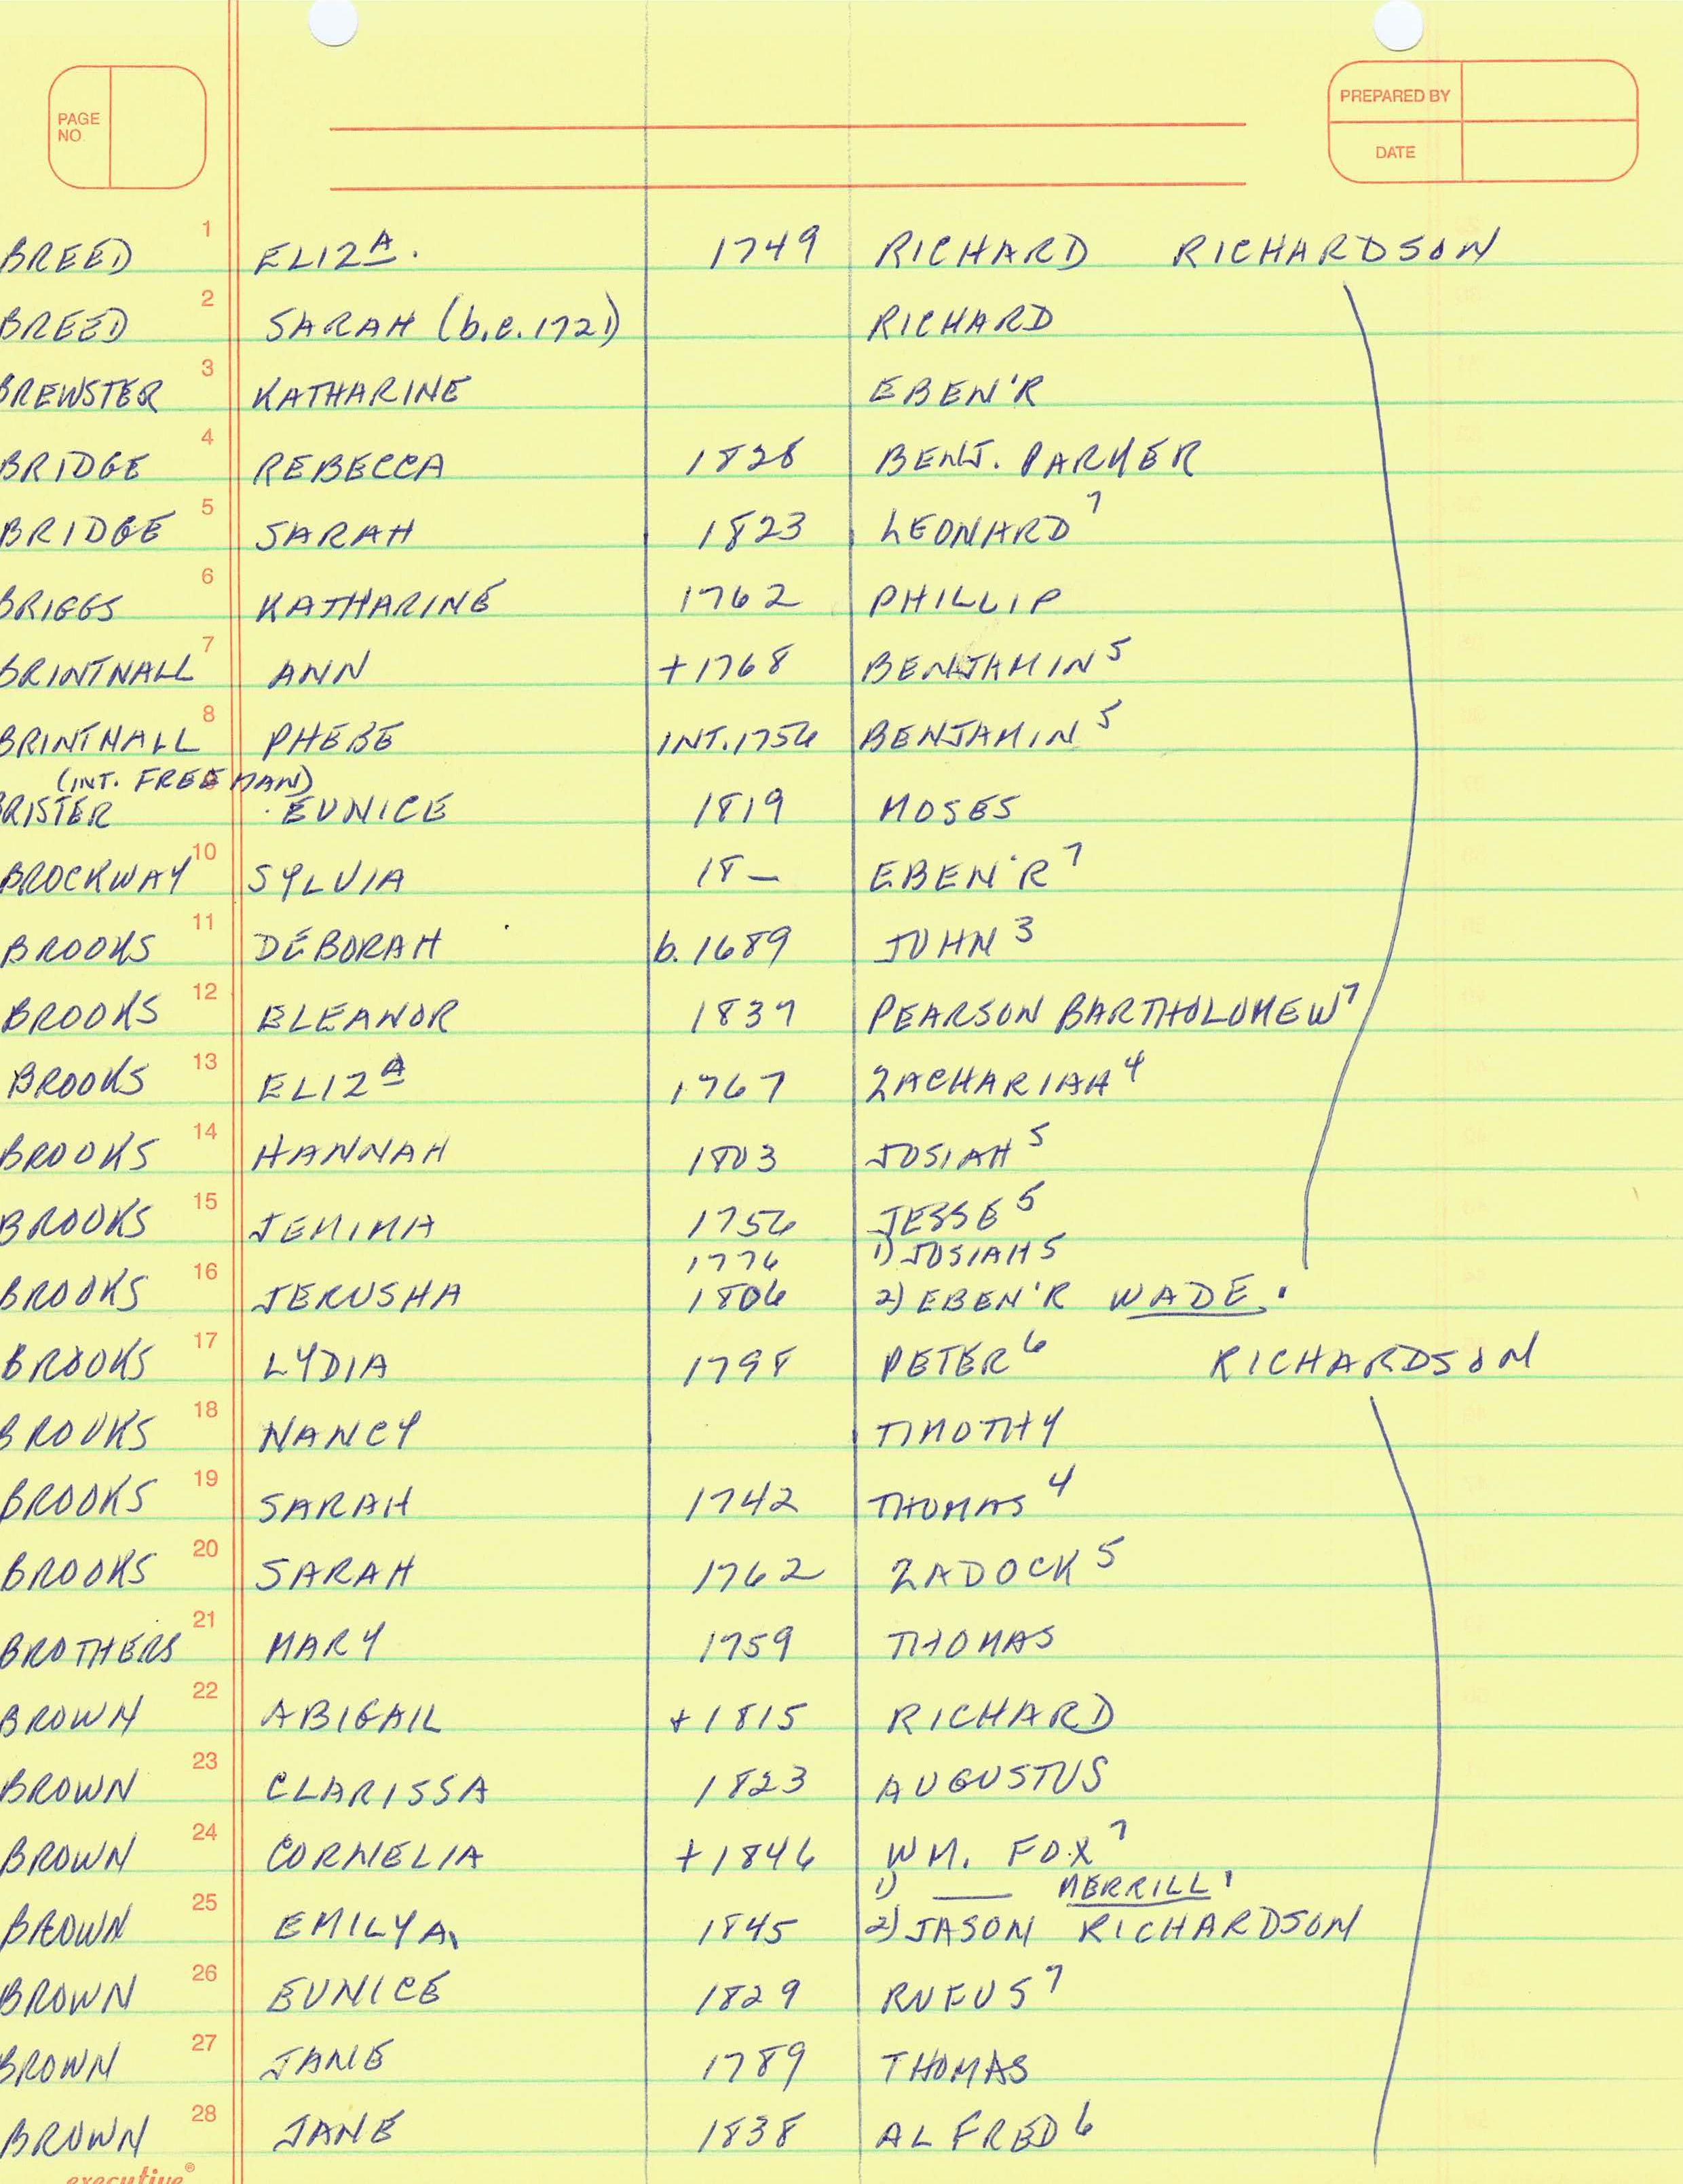 PAGE NO.
PREPARED BY
DATE
1 BREED ELIZA. 1749 RICHARD RICHARDSON
2 BREED SARAH (b.c.1721) RICHARD
3 BREWSTER KATHARINE EBEN'R
4 BRIDGE REBECCA 1828 BENJ. PARKER
5 BRIDGE SARAH 1823 LEONARD 7
6 BRIGGS KATHARINE 1762 PHILLIP
7 BRINTNALL ANN +1768 BENJAMIN 5
8 BRINTNALL PHEBE INT.1756 BENJAMIN 5
(INT. FREEMAN)
BRISTER EUNICE 1819 MOSES
10 BROCKWAY SYLVIA 18— EBEN'R 7
11 BROOKS DEBORAH b.1689 JOHN 3
12 BROOKS ELEANOR 1837 PEARSON BARTHOLOMEW 7
13 BROOKS ELIZA 1767 ZACHARIAH 4
14 BROOKS HANNAH 1803 JOSIAH 5
15 BROOKS JEMIMA 1756 JESSE 5
1776 1) JOSIAH 5
16 BROOKS JERUSHA 1806 2) EBEN'R WADE.
17 BROOKS LYDIA 1798 PETER 6 RICHARDSON
18 BROOKS NANCY TIMOTHY
19 BROOKS SARAH 1742 THOMAS 4
20 BROOKS SARAH 1762 ZADOCK 5
21 BROTHERS MARY 1759 THOMAS
22 BROWN ABIGAIL +1815 RICHARD
23 BROWN CLARISSA 1823 AUGUSTUS
24 BROWN CORNELIA +1846 WM. FOX 7
1) —— MERRILL
25 BROWN EMILY A. 1845 2) JASON RICHARDSON
26 BROWN EUNICE 1829 RUFUS 7
27 BROWN JANE 1789 THOMAS
28 BROWN JANE 1838 ALFRED 6
executive®